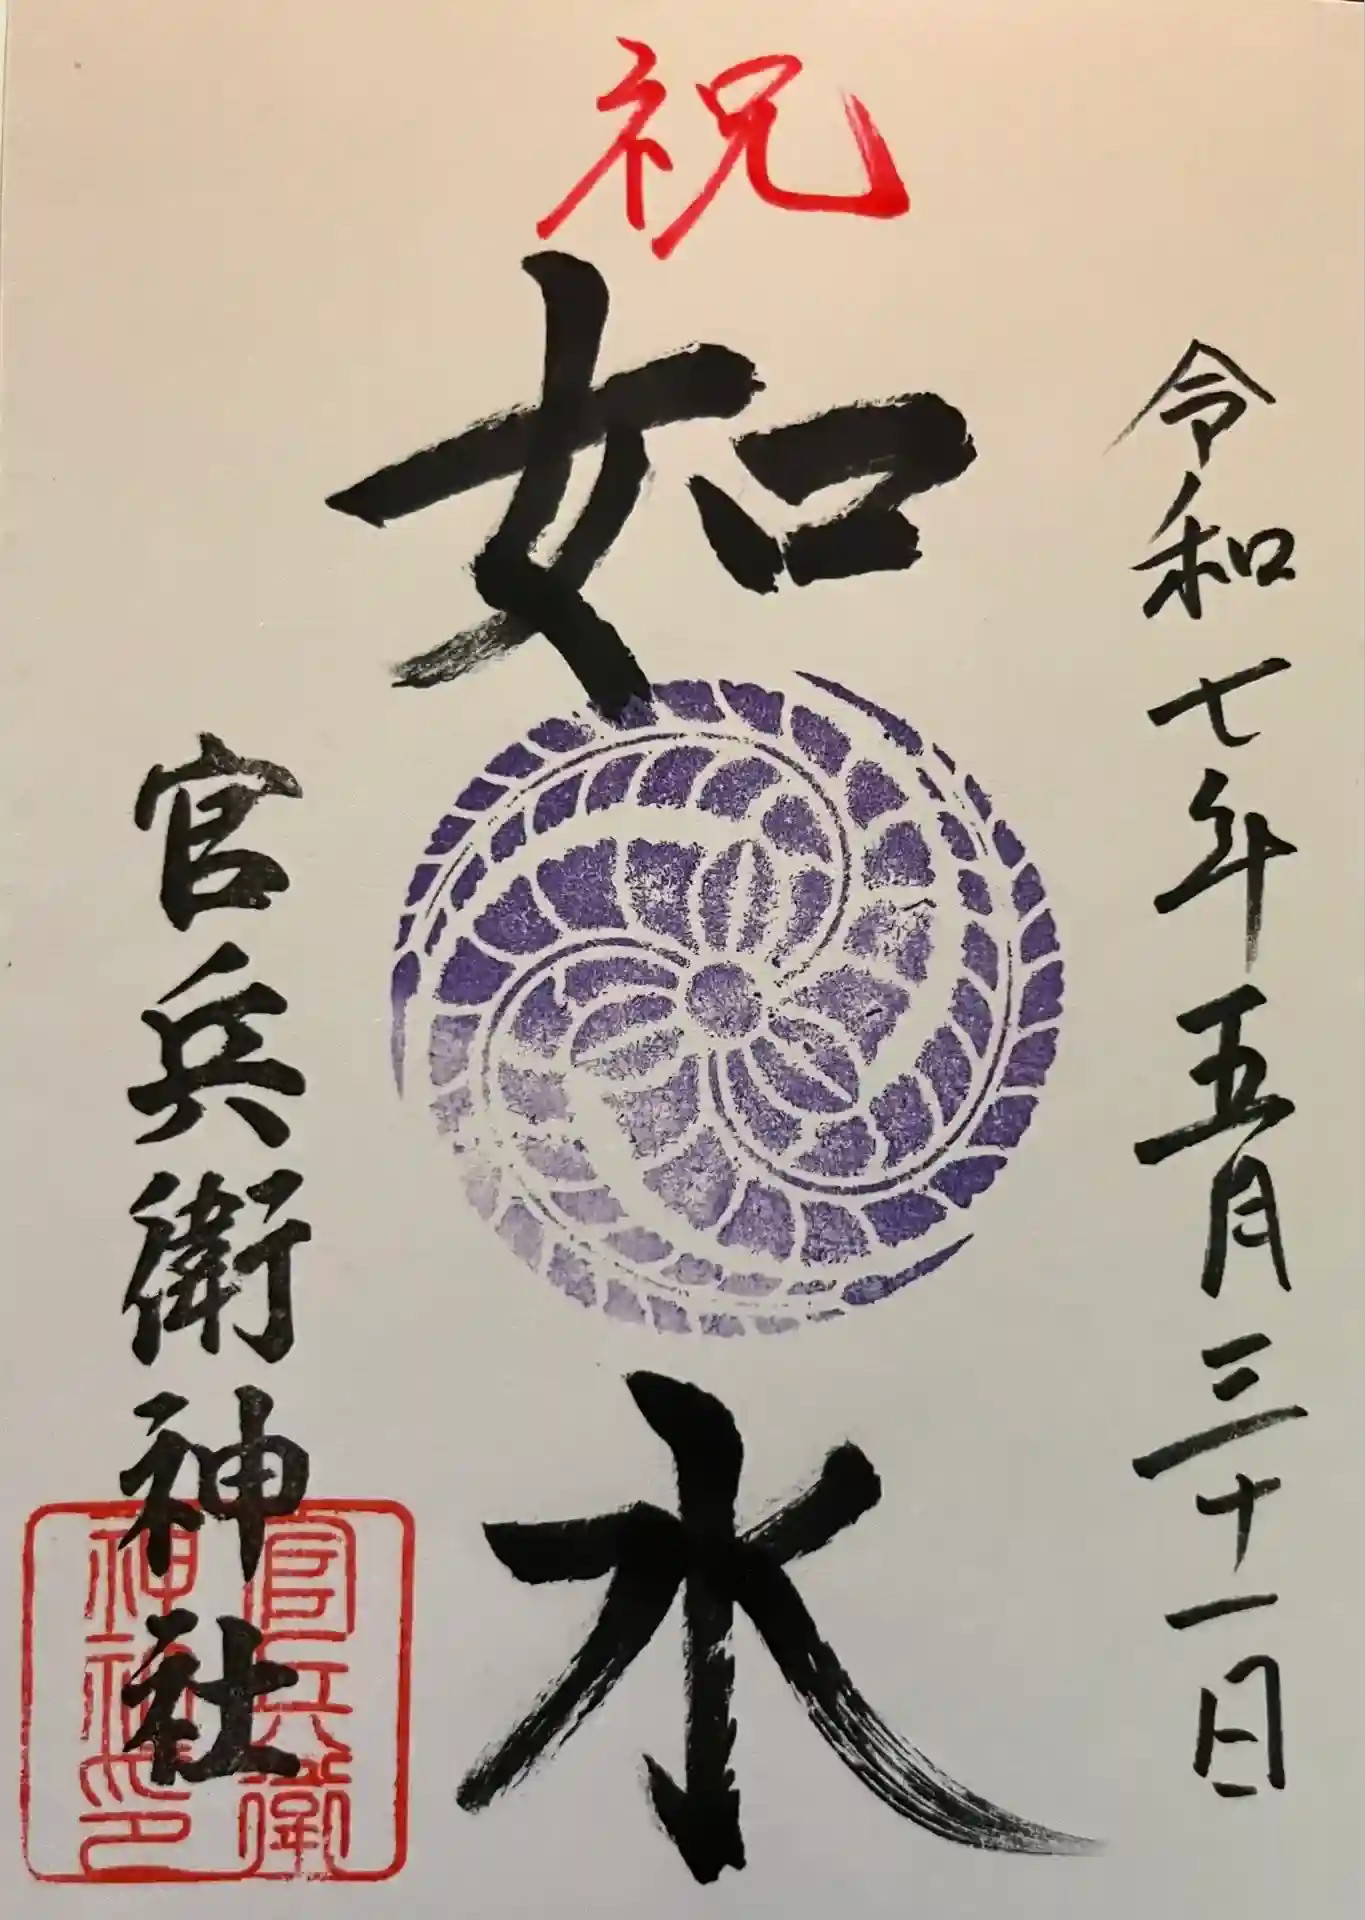 祝
令和七年五月三十一日
如水
官兵衛神社
官兵衛
神社印